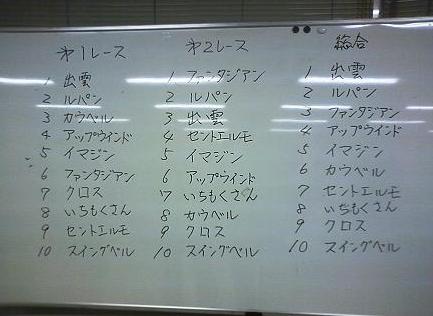 第1レース
1 出雲
2 ルパン
3 カウベル
4 アップウインド
5 イマジン
6 ファンタジアン
7 クロス
8 いちもくさん
9 セントエルモ
10 スイングベル
第2レース
1 ファンタジアン
2 ルパン
3 出雲
4 セントエルモ
5 イマジン
6 アップウインド
7 いちもくさん
8 カウベル
9 クロス
10 スイングベル
総合
1 出雲
2 ルパン
3 ファンタジアン
4 アップウインド
5 イマジン
6 カウベル
7 セントエルモ
8 いちもくさん
9 クロス
10 スイングベル